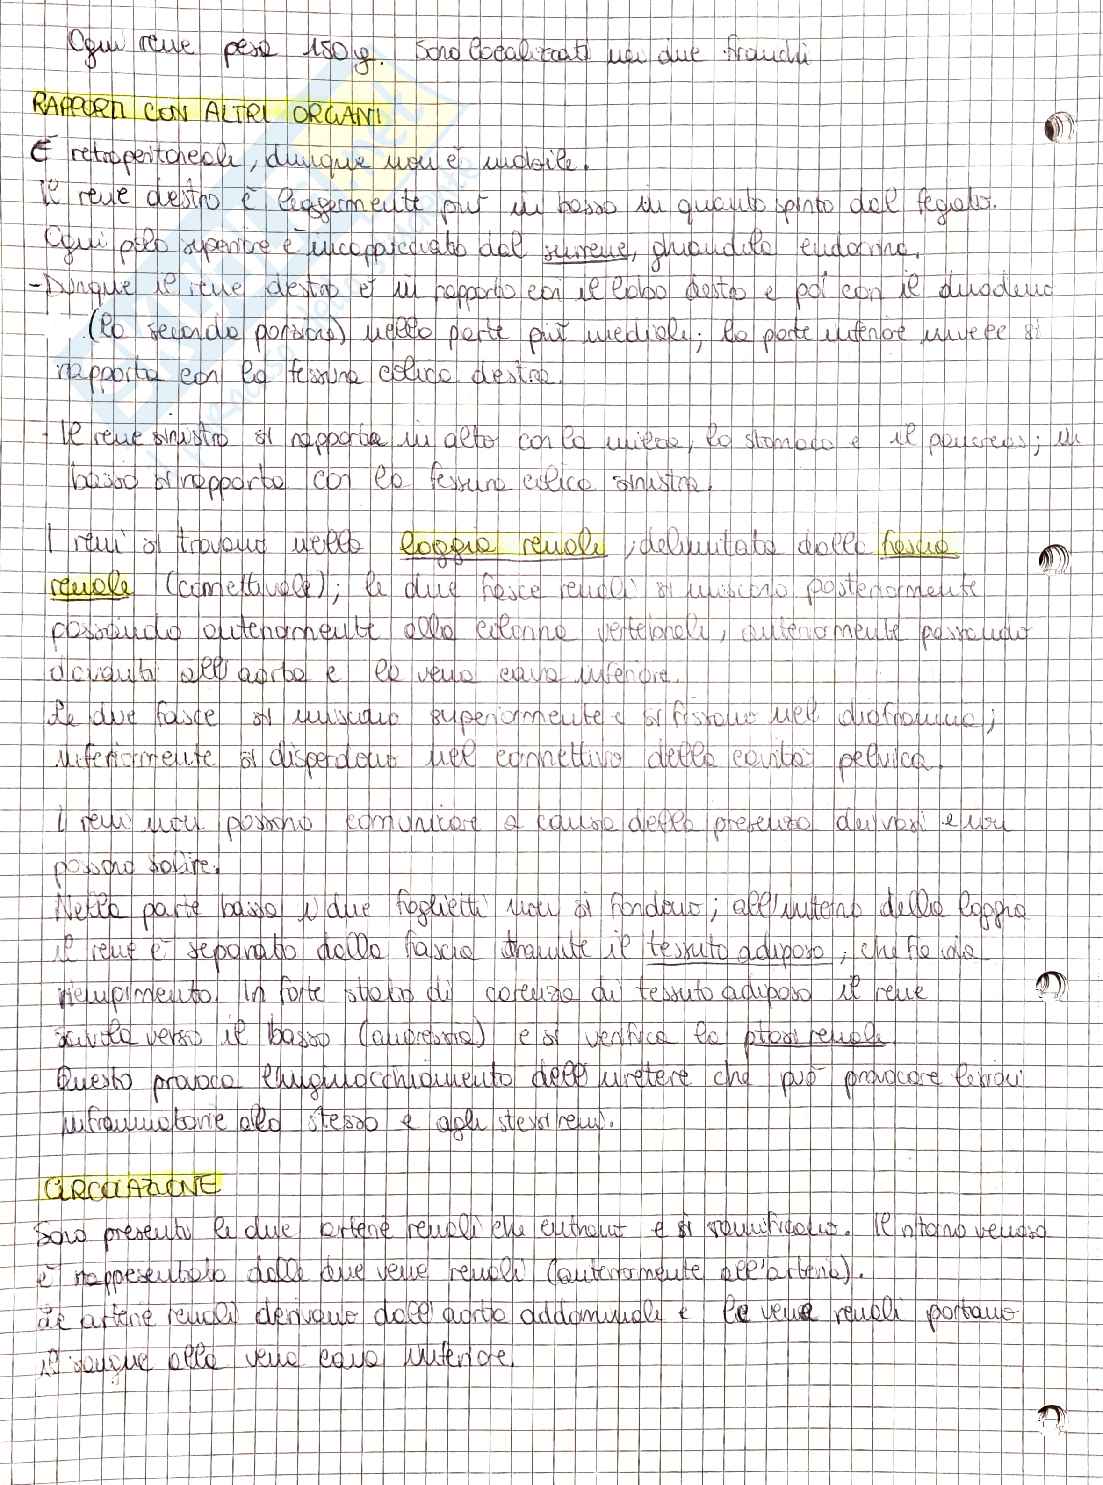 Ogni rene pesa 150 g. Sono localizzati nei due fianchi
RAPPORTI CON ALTRI ORGANI
È retroperitoneale, dunque non è mobile.
Il rene destro è leggermente più in basso in quanto spinto dal fegato.
Ogni polo superiore è incappucciato dal surrene, ghiandola endocrina.
- Dunque il rene destro è in rapporto con il lobo destro e poi con il duodeno
(la seconda porzione) nella parte più mediale; la parte inferiore invece si
rapporta con la fessura colica destra.
- Il rene sinistro si rapporta in alto con la milza, lo stomaco e il pancreas; in
basso si rapporta con la fessura colica sinistra.
I reni si trovano nella loggia renale, delimitata dalla fascia
renale (connettivale); le due fasce renali si uniscono posteriormente
passando anteriormente alla colonna vertebrale, anteriormente passando
davanti all'aorta e la vena cava inferiore.
Le due fasce si uniscono superiormente e si fissano nel diaframma;
inferiormente si disperdono nel connettivo della cavità pelvica.
I reni non possono comunicare a causa della presenza dei vasi e non
possono salire.
Nella parte bassa i due foglietti non si fondono; all'interno della loggia
il rene è separato dalla fascia tramite il tessuto adiposo, che fa da
riempimento. In forte stato di carenza di tessuto adiposo il rene
scivola verso il basso (anoressia) e si verifica la ptosi renale
Questo provoca l'inginocchiamento dell'uretere che può provocare lesioni
infiammatorie allo stesso e agli stessi reni.
CIRCOLAZIONE
Sono presenti le due arterie renali che entrano e si ramificano. Il ritorno venoso
è rappresentato dalle due vene renali (anteriormente all'arteria).
Le arterie renali derivano dall'aorta addominale e le vene renali portano
il sangue alla vena cava inferiore.